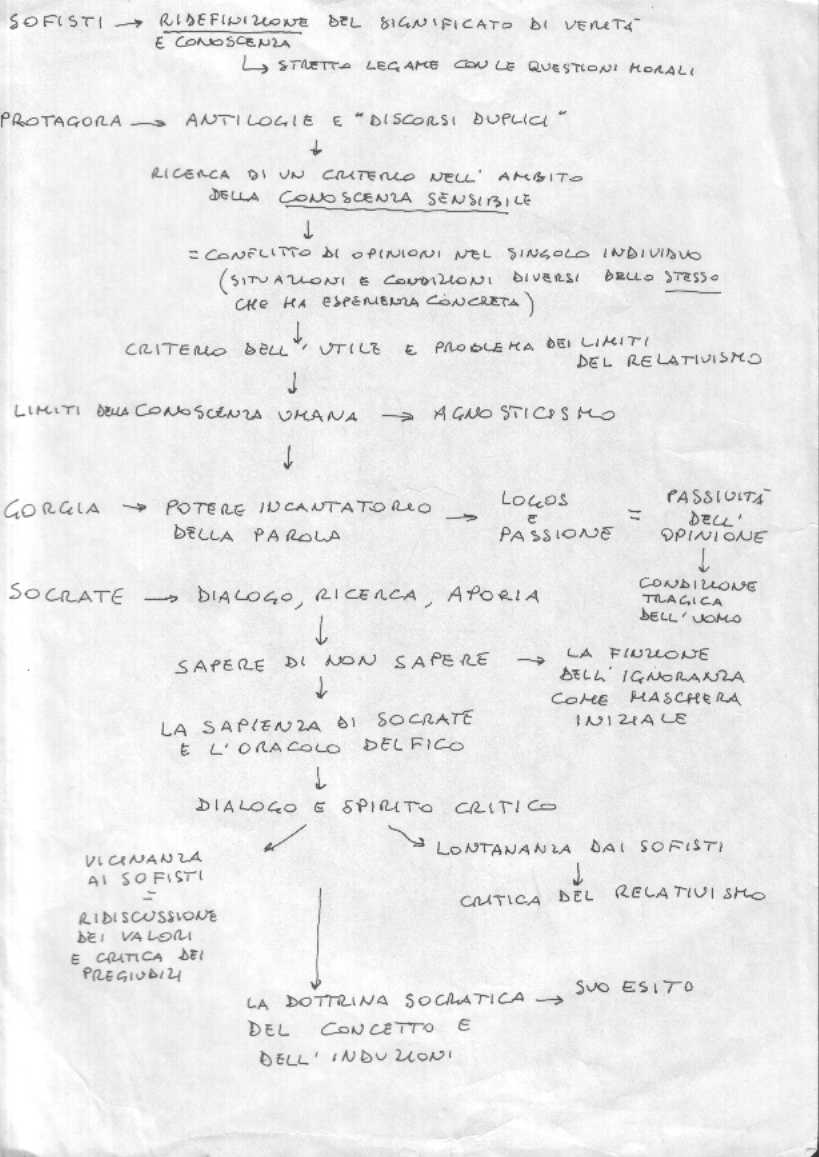 SOFISTI → RIDEFINIZIONE DEL SIGNIFICATO DI VERITÀ
E CONOSCENZA
↳ STRETTO LEGAME CON LE QUESTIONI MORALI
PROTAGORA → ANTILOGIE E "DISCORSI DUPLICI"
↓
RICERCA DI UN CRITERIO NELL'AMBITO
DELLA CONOSCENZA SENSIBILE
↓
= CONFLITTO DI OPINIONI NEL SINGOLO INDIVIDUO
(SITUAZIONI E CONDIZIONI DIVERSI DELLO STESSO
CHE HA ESPERIENZA CONCRETA)
↓
CRITERIO DELL'UTILE E PROBLEMA DEI LIMITI
DEL RELATIVISMO
↓
LIMITI DELLA CONOSCENZA UMANA → AGNOSTICISMO
↓
GORGIA → POTERE INCANTATORIO
DELLA PAROLA → LOGOS
E
PASSIONE = PASSIVITÀ
DELL'
OPINIONE
↓
CONDIZIONE
TRAGICA
DELL'UOMO
SOCRATE → DIALOGO, RICERCA, APORIA
↓
SAPERE DI NON SAPERE → LA FINZIONE
DELL'IGNORANZA
COME MASCHERA
INIZIALE
↓
LA SAPIENZA DI SOCRATE
E L'ORACOLO DELFICO
↓
DIALOGO E SPIRITO CRITICO
VICINANZA
AI SOFISTI
=
RIDISCUSSIONE
DEI VALORI
E CRITICA DEI
PREGIUDIZI
LONTANANZA DAI SOFISTI
↓
CRITICA DEL RELATIVISMO
LA DOTTRINA SOCRATICA → SUO ESITO
DEL CONCETTO E
DELL'INDUZIONI